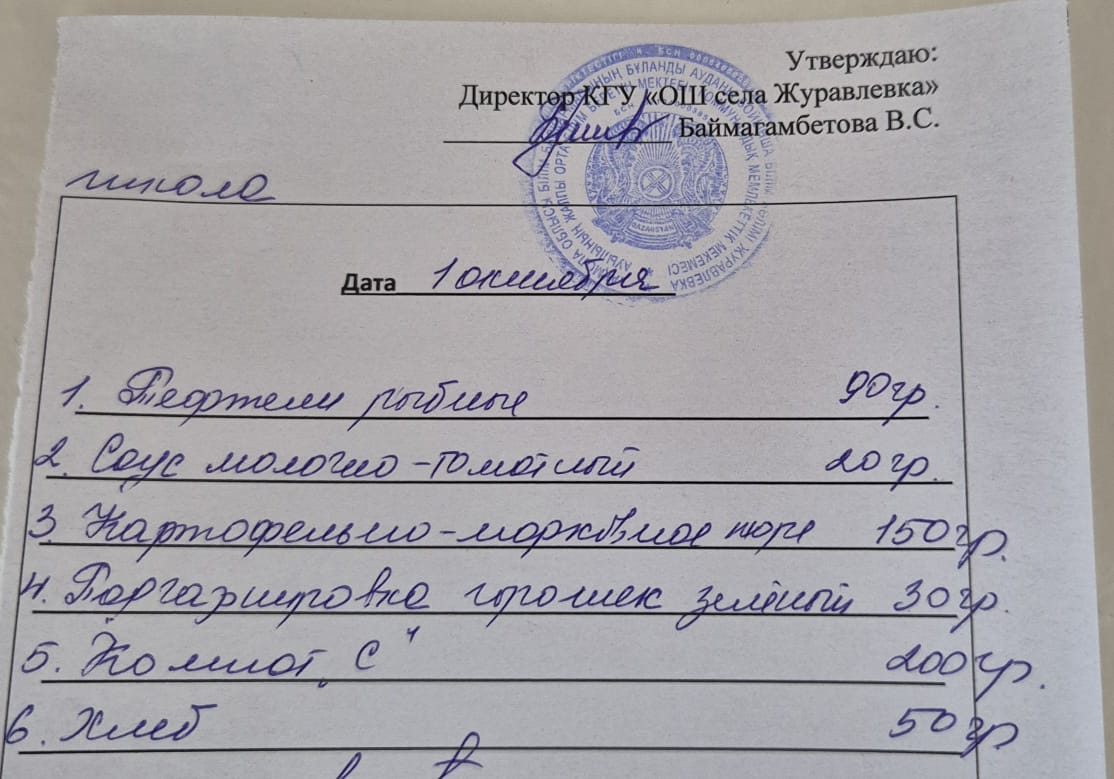 Утверждаю:
Директор КГУ «ОШ села Журавлевка»
Баймагамбетова В.С.
школа
Дата 1 октября
1. Тефтели рыбные 90гр.
2. Соус молочно-томатный 20гр.
3. Картофельно-морковное пюре 150гр.
4. Подгарнировка горошек зелёный 30гр.
5. Компот „С“ 200гр.
6. Хлеб 50гр